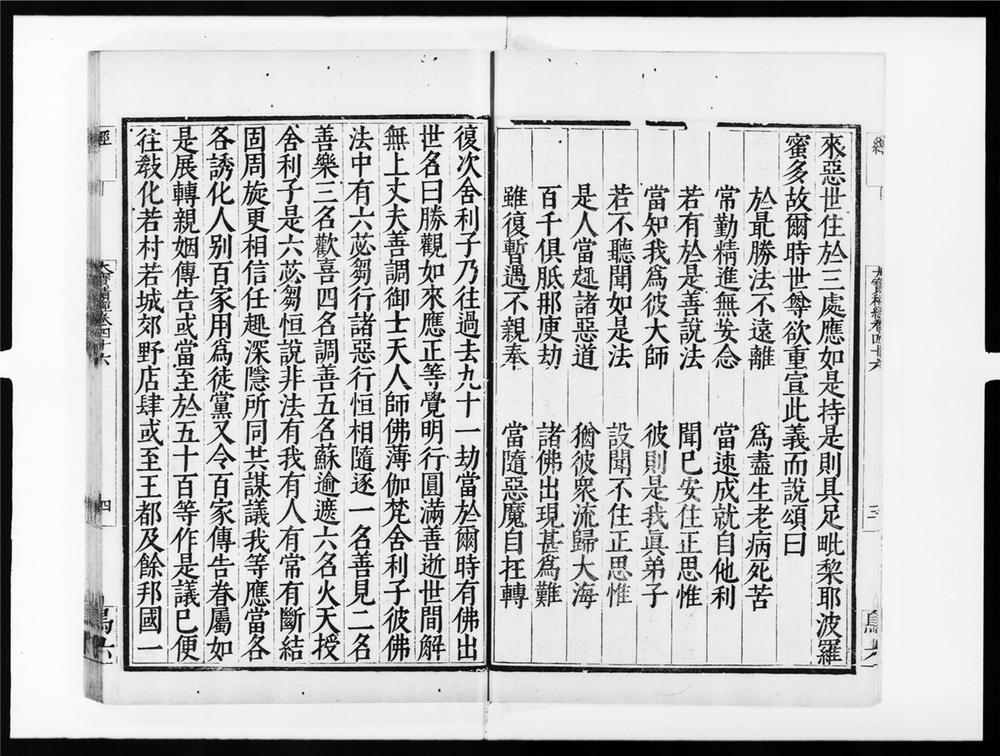 來惡世住於三處應如是持是則具足毗黎耶波羅
蜜多故爾時世尊欲重宣此義而說頌曰
於最勝法不遠離　爲盡生老病死苦
常勤精進無妄念　當速成就自他利
若有於是善說法　聞已安住正思惟
當知我爲彼大師　彼則是我眞弟子
若不聽聞如是法　設聞不住正思惟
是人當趣諸惡道　猶彼衆流歸大海
百千俱胝那庾劫　諸佛出現甚爲難
雖復暫遇不親奉　當隨惡魔自在轉
復次舍利子乃往過去九十一劫當於爾時有佛出
世名曰勝觀如來應正等覺明行圓滿善逝世間解
無上丈夫善調御士天人師佛薄伽梵舍利子彼佛
法中有六苾芻行諸惡行恒相隨逐一名善見二名
善樂三名歡喜四名調善五名蘇逾遮六名火天授
舍利子是六苾芻恒說非法有我有人有常有斷結
固周旋更相信任趣深隱所同共謀議我等應當各
各誘化人別百家用爲徒黨又令百家傳告眷屬如
是展轉親姻傳告或當至於五十百等作是議已便
往敎化若村若城郊野店肆或至王都及餘邦國一
經
大寶積經卷四十六
四
鳥六